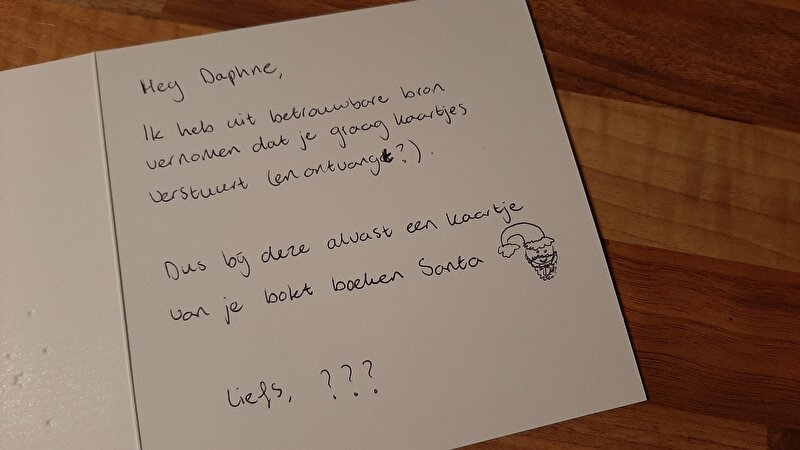 Hey Daphne,
Ik heb uit betrouwbare bron
vernomen dat je graag kaartjes
verstuurt (en ontvangt?).
Dus bij deze alvast een kaartje
van je bokt boeken Santa
Liefs, ???